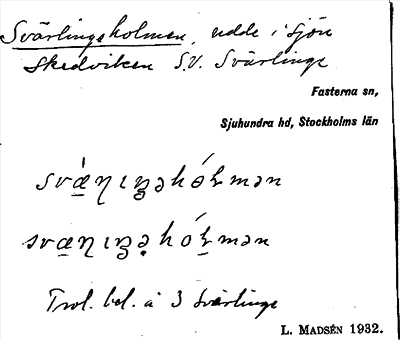 Svärlingsholmen, udde i sjön
Skedviken S.V. Svärlinge
Fasterna sn,
Sjuhundra hd, Stockholms län
Trol. bel. å 3 Svärlinge
L. MADSÉN 1932.